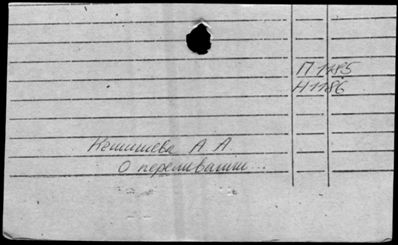 П 1185
Н 1186
Кешишева А. А.
О переливании...